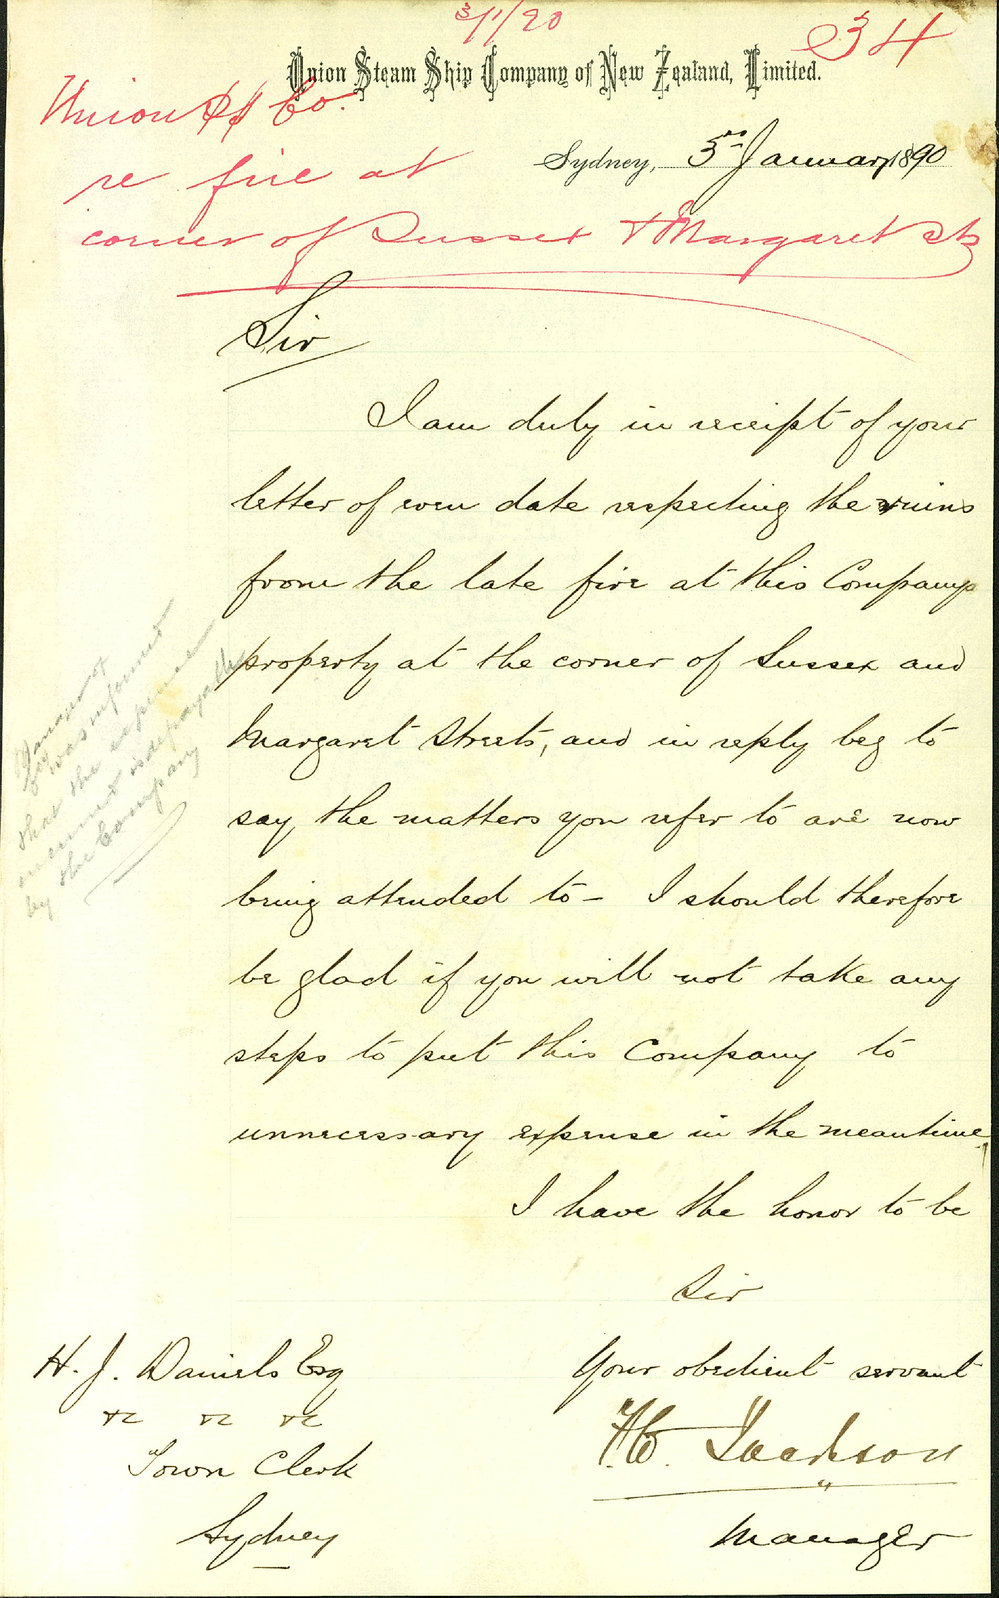 3/1/90
34
Union Steam Ship Company of New Zealand, Limited.
Union SS Co.
re fire at
corner of Sussex & Margaret Sts
Sydney, 3rd January 1890
Sir
I am duly in receipt of your
letter of even date respecting the ruins
from the late fire at this Companys
property at the corner of Sussex and
Margaret Streets, and in reply beg to
say the matters you refer to are now
being attended to – I should therefore
be glad if you will not take any
steps to put this Company to
unnecessary expense in the meantime,
I have the honor to be
Sir
Your obedient servant
Jackson
Manager
H. J. Daniels Esq
&c &c &c
Town Clerk
Sydney
Manager
was informed
that the expense
incurred is payable
by the Company